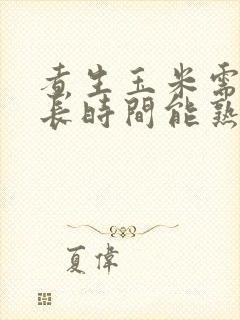 煮生玉米需
長時間能熟
夏偉